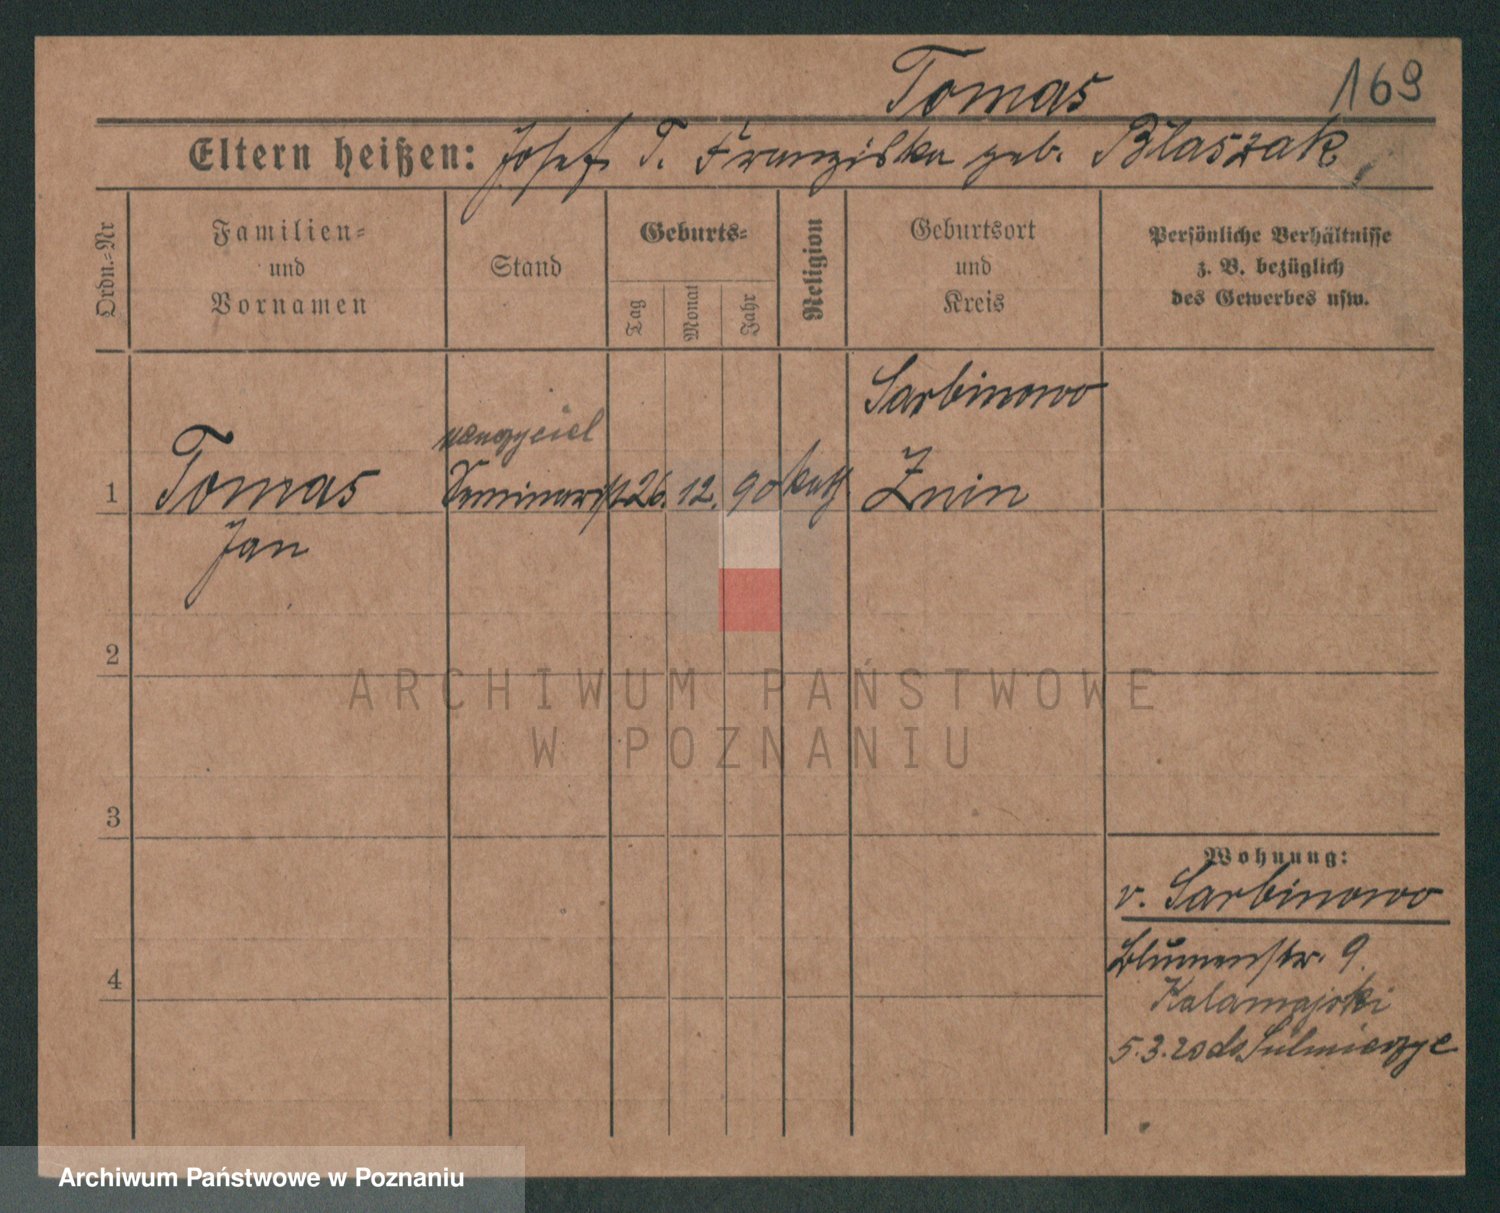 Tomas 169
Eltern heißen: Josef T. Franziska geb. Blaszak
Ordn.-Nr
Familien-
und
Vornamen
Stand
Geburts-
Tag
Monat
Jahr
Religion
Geburtsort
und
Kreis
Persönliche Verhältnisse
z. B. bezüglich
des Gewerbes usw.
Sarbinowo
nauczyciel
1 Tomas Seminarist 26. 12. 90 kath Znin
Jan
2
3
4
Wohnung:
v. Sarbinowo
Blumenstr. 9.
Kalamajski
5.3.20 do Sulmierzyc
ARCHIWUM PAŃSTWOWE
W POZNANIU
Archiwum Państwowe w Poznaniu